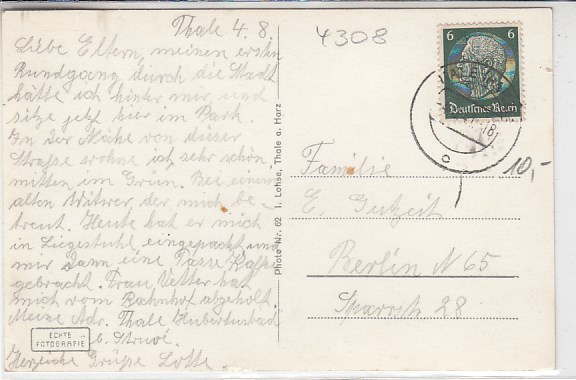 Thale 4. 8.
Liebe Eltern, meinen ersten
Rundgang durch die Stadt
hätte ich hinter mir und
sitze jetzt hier im Park.
In der Nähe von dieser
Strasse wohne ich sehr schön
mitten im Grün. Bei einem
alten Witwer der mich be-
treut. Heute hat er mich
in Liegestuhl eingepackt und
mir dann eine Tasse Kaffe
gebracht. Frau Vetter hat
mich vom Bahnhof abgeholt.
Meine Adr. Thale Hubertusbad
b. Struve.
Herzliche Grüße Lotte.
ECHTE
FOTOGRAFIE
Photo Nr. 62 I. Lohse, Thale a. Harz
4308
6 6
Deutsches Reich
10,-
Familie
E. Gutzeit
Berlin N 65
Sparrstr 28